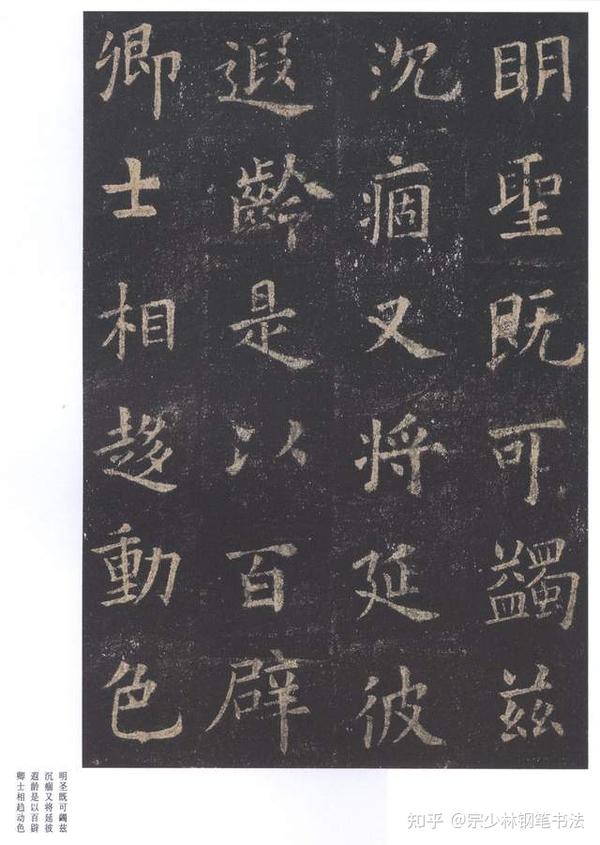 眀聖既可蠲兹
沉痼又将延彼
遐齡是以百辟
卿士相趍動色
明圣既可蠲兹
沉痼又将延彼
遐龄是以百辟
卿士相趋动色
知乎 @宗少林钢笔书法